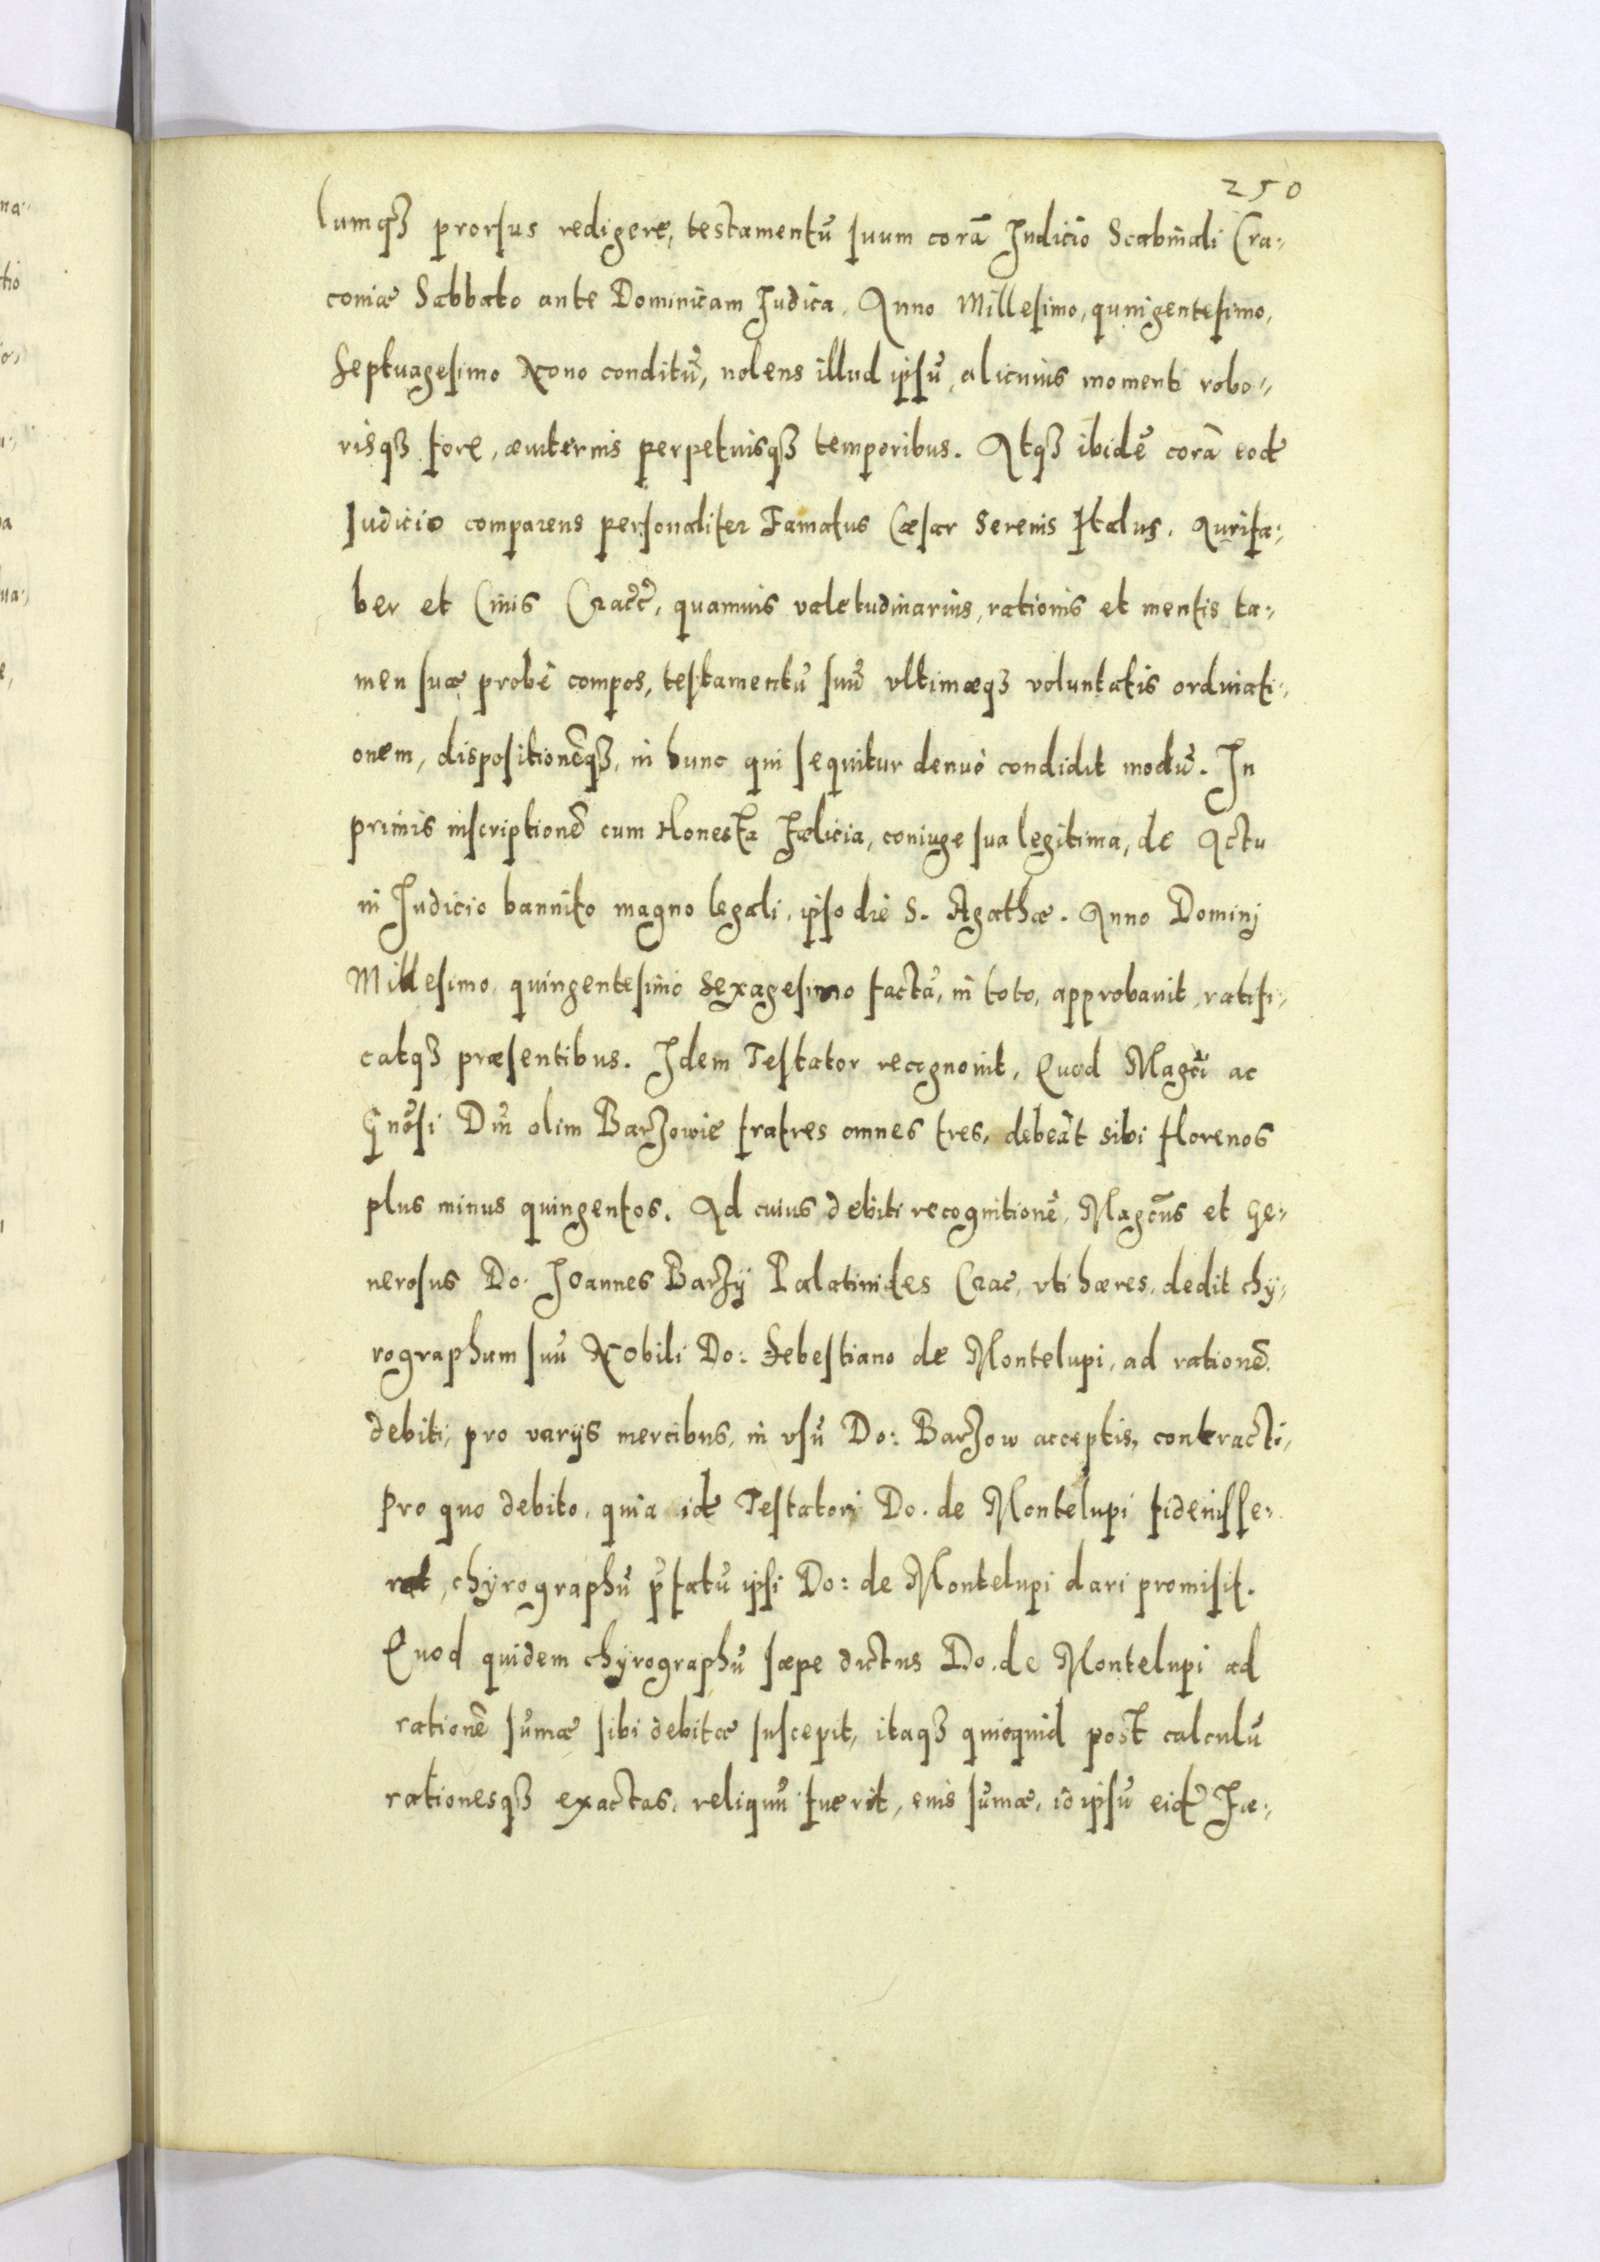 250
lumqȝ prorsus redigere, testamentũ suum corã Judicio Scabinali Cra-
coviæ Sabbato ante Dominicam Judica, Anno Millesimo, quingentesimo,
Septuagesimo Nono conditũ, nolens illud ipsũ, alicuius momenti robo-
risqȝ fore, æviternis perpetuisqȝ temporibus. Atqȝ ibidẽ corã eodẽ
Judicio comparens personaliter Famatus Cæsar Serenis Italus, Aurifa-
ber et Civis Cracc̃, quamvis valetudinarius, rationis et mentis ta-
men suæ probè compos, testamentũ suũ ultimæqȝ voluntatis ordinati-
onem, dispositionẽqȝ, in hunc qui sequitur denuò condidit modũ. In
primis inscriptionẽ cum Honesta Fælicia, coniuge sua legitima, de Actu
in Judicio bannito magno legali, ipso die S. Agathæ. Anno Dominj
Millesimo quingentesimo Sexagesimo factã, in toto, approbavit, ratifi-
catqȝ præsentibus. Idem Testator recognovit, Quod Magcĩ ac
Gnõsi Dñi olim Barzowie fratres omnes tres, debeãt sibi florenos
plus minus quingentos. Ad cuius debiti recognitionẽ, Magcũs et Ge-
nerosus Do. Joannes Barzÿ Palatinides Crac, uti hæres, dedit chÿ-
rographum suũ Nobili Do: Sebestiano de Montelupi, ad rationẽ
debiti, pro varijs mercibus, in usũ Do: Barzow acceptis, contracti,
Pro quo debito, quia idẽ Testatori Do. de Montelupi fideiusse-
rat, chÿrographũ p̃fatũ ipsi Do: de Montelupi dari promisit.
Quod quidem chÿrographũ sæpe dictus Do. de Montelupi ad
rationẽ sum̃æ sibi debitæ suscepit, itaqȝ quicquid post calculũ
rationesqȝ exactas, reliquũ fuerit, eius sum̃æ, id ipsũ eidẽ Fæ-